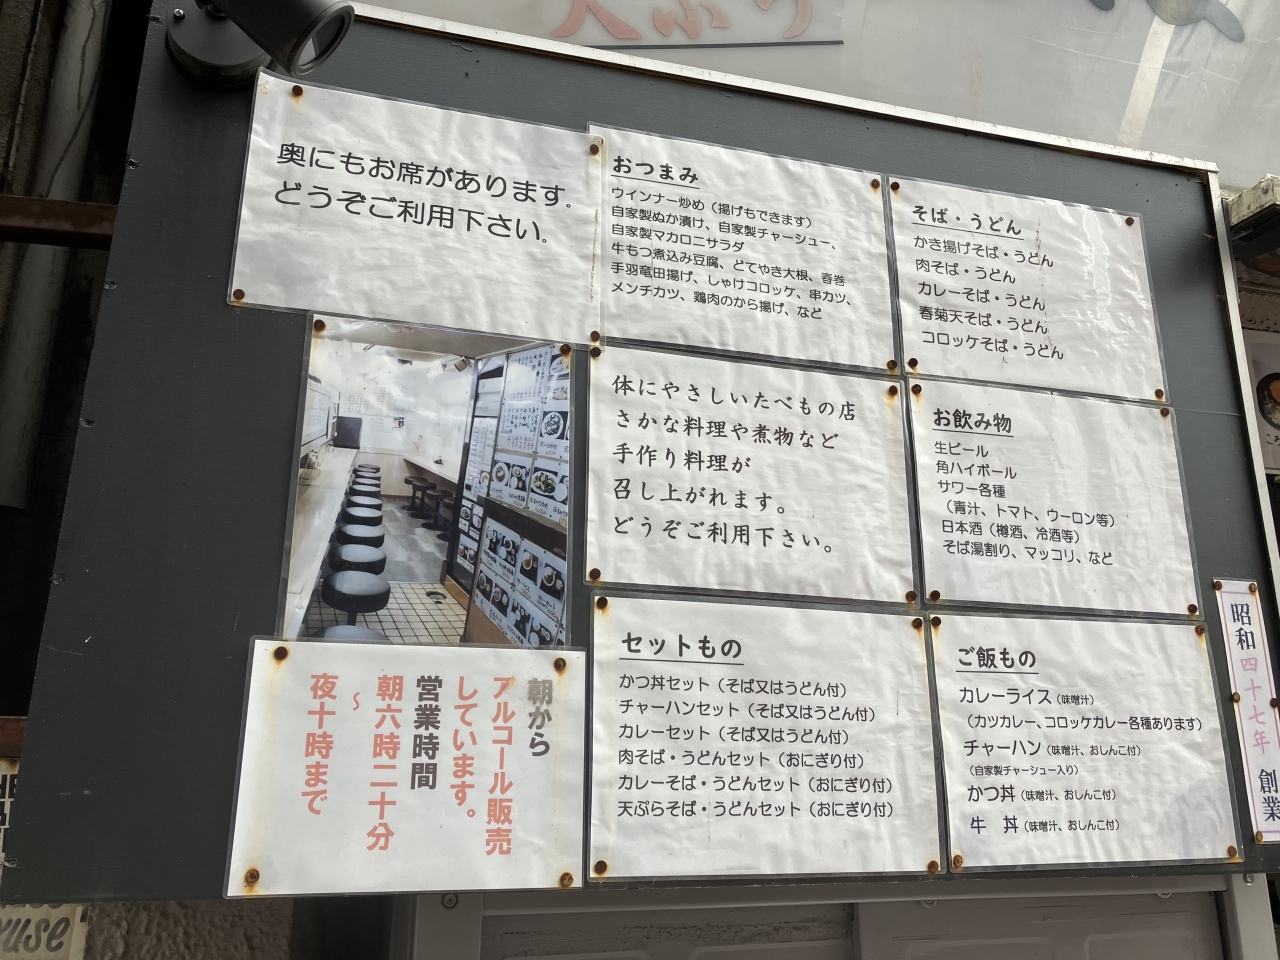 天ぷら
奥にもお席があります。
どうぞご利用下さい。
おつまみ
ウインナー炒め（揚げもできます）
自家製ぬか漬け、自家製チャーシュー、
自家製マカロニサラダ
牛もつ煮込み豆腐、とてやき大根、春巻
手羽竜田揚げ、しゃけコロッケ、串カツ、
メンチカツ、鶏肉のから揚げ、など
そば・うどん
かき揚げそば・うどん
肉そば・うどん
カレーそば・うどん
春菊天そば・うどん
コロッケそば・うどん
体にやさしいたべもの店
さかな料理や煮物など
手作り料理が
召し上がれます。
どうぞご利用下さい。
お飲み物
生ビール
角ハイボール
サワー各種
（青汁、トマト、ウーロン等）
日本酒（樽酒、冷酒等）
そば湯割り、マッコリ、など
朝から
アルコール販売
しています。
営業時間
朝六時二十分
～
夜十時まで
セットもの
かつ丼セット（そば又はうどん付）
チャーハンセット（そば又はうどん付）
カレーセット（そば又はうどん付）
肉そば・うどんセット（おにぎり付）
カレーそば・うどんセット（おにぎり付）
天ぷらそば・うどんセット（おにぎり付）
ご飯もの
カレーライス（味噌汁）
（カツカレー、コロッケカレー各種あります）
チャーハン（味噌汁、おしんこ付）
（自家製チャーシュー入り）
かつ丼（味噌汁、おしんこ付）
牛 丼（味噌汁、おしんこ付）
昭和四十七年 創業